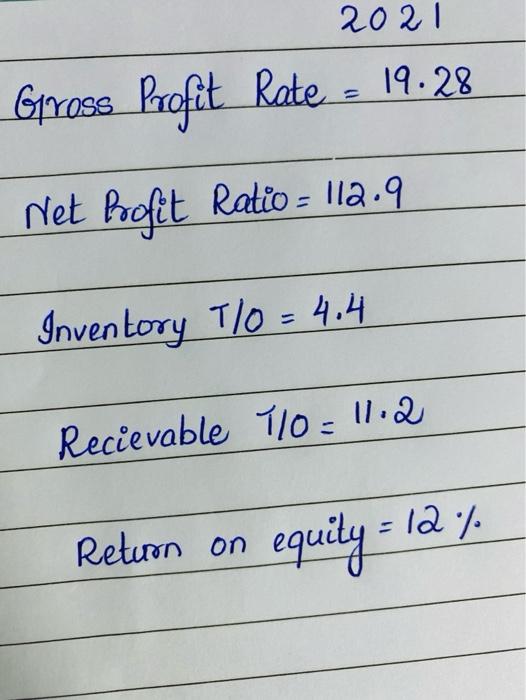 2021
Gross Profit Rate = 19.28
Net Profit Ratio = 112.9
Inventory T/O = 4.4
Recievable T/O = 11.2
Return on equity = 12 %